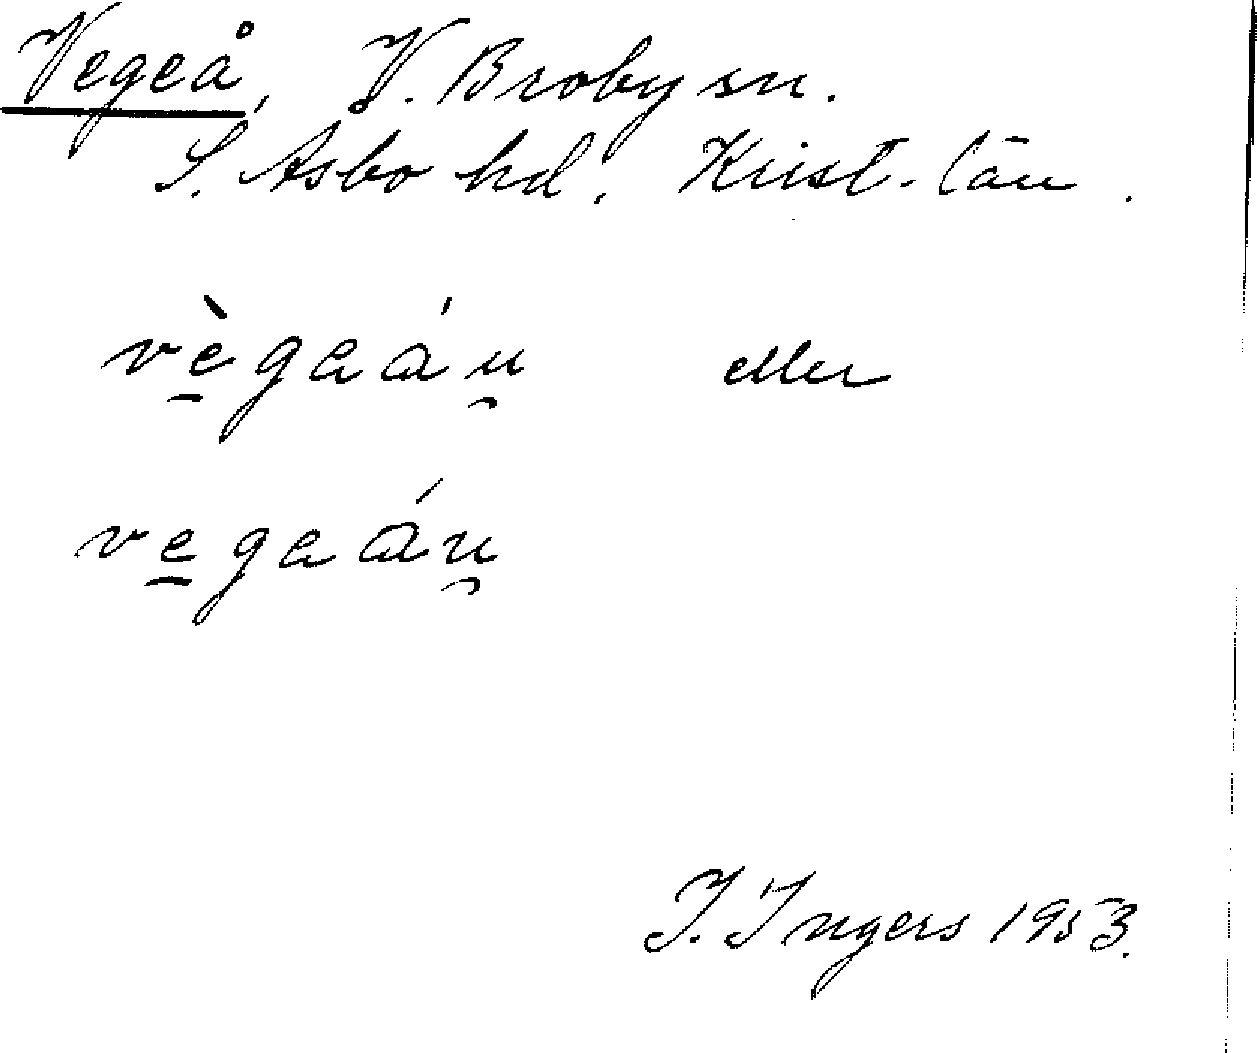 Vegeå, V. Broby sn.
S. Åsbo hd. Krist. län.
vè̱geáu̯ eller
ve̱geáu̯
I. Ingers 1953.